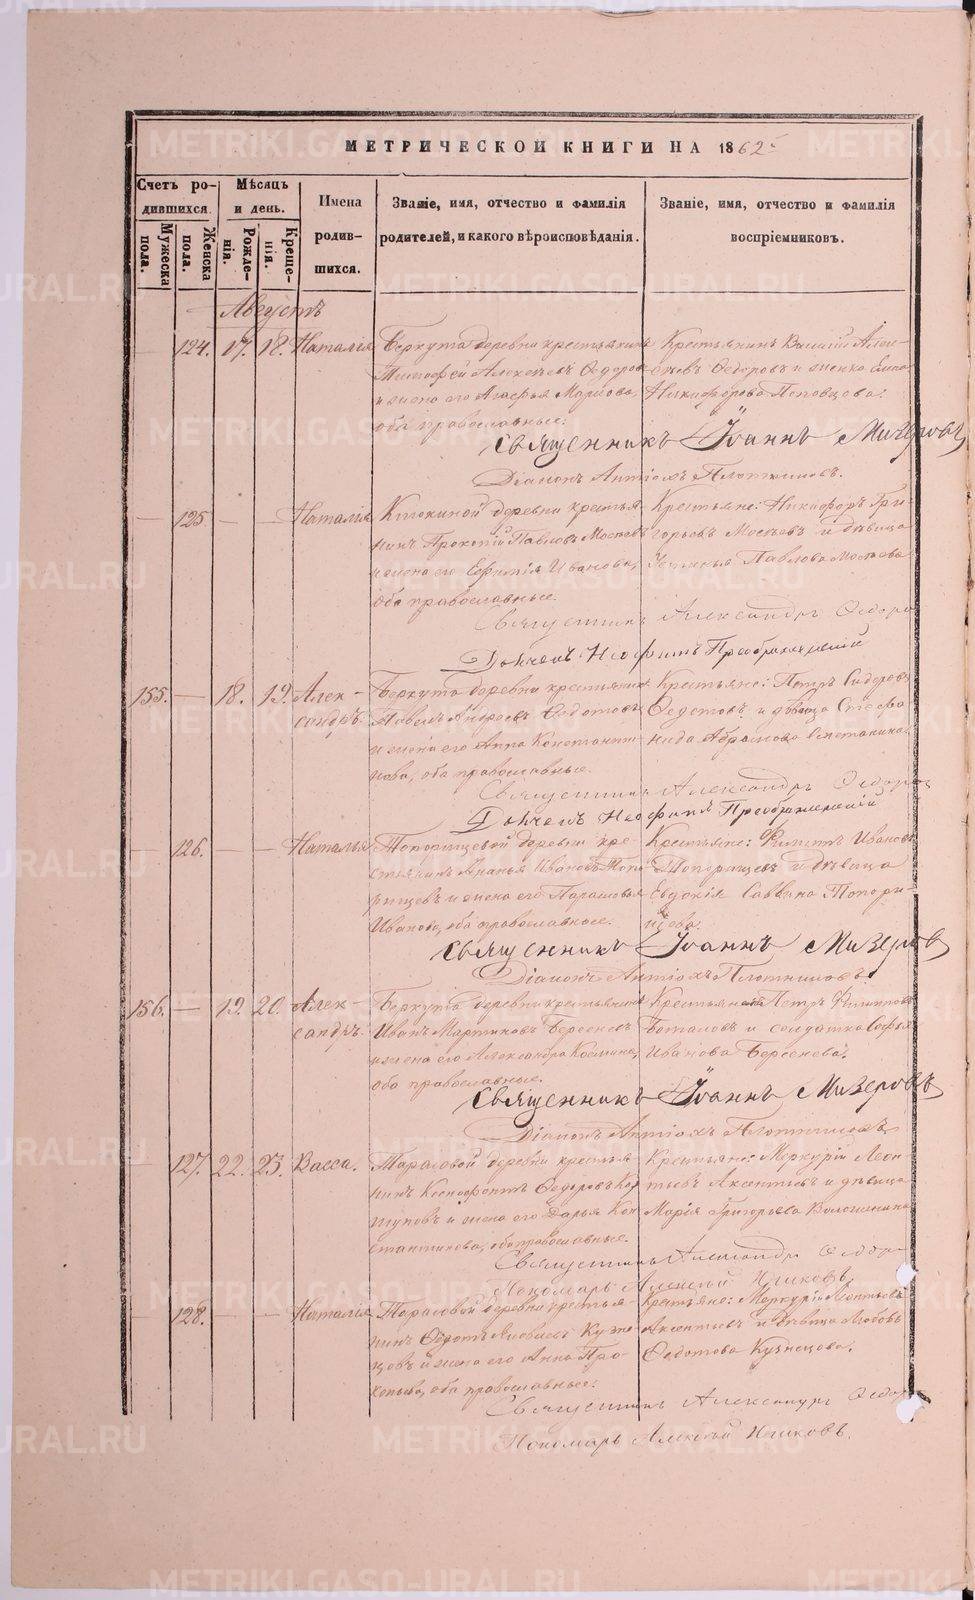 МЕТРИЧЕСКОЙ КНИГИ НА 1862
Счетъ родившихся.
Мужеска пола.
Женска пола.
Мѣсяцъ и день.
Рожденія.
Крещенія.
Имена родившихся.
Званіе, имя, отчество и фамилія
родителей, и какого вѣроисповѣданія.
Званіе, имя, отчество и фамилія
воспріемниковъ.
Августъ
124. 17. 18. Наталія
Беркута деревни крестьянинъ
Тимофей Алексѣевъ Федоровъ
и жена его Агафья Маркова,
оба православные.
Крестьянинъ Василій Алек-
сѣевъ Федоровъ и женка
Никифорова
Священникъ Іоаннъ Мизеровъ
Діаконъ Антіохъ Плотниковъ.
125 — — Наталія
деревни крестья-
нинъ Прокопій Павловъ
и жена его Евфимія Иванова,
оба православные.
Крестьяне: Никифоръ Гри-
горьевъ и дѣвица
Павлова
Священникъ Александръ Федоро
Дьячекъ Неофитъ Преображенскій
155. — 18. 19. Алек-
сандръ.
Беркута деревни крестьянинъ
Павелъ Андреевъ Федотовъ
и жена его Анна Константи-
нова, оба православные.
Крестьяне: Петръ Сидоровъ
Федотовъ и дѣвица Степа
нида Абрамова
Священникъ Александръ Федоро
Дьячекъ Неофитъ Преображенскій
126. — — Наталья
Топорищевой деревни кре-
стьянинъ Ананья Ивановъ Топо-
рищевъ и жена его Парасковья
Иванова, оба православные.
Крестьяне: Филипъ Ивановъ
Топорищевъ и дѣвица
Евдокія Саввина Топори-
щева.
Священникъ Іоаннъ Мизеровъ
Діаконъ Антіохъ Плотниковъ
156. — 19. 20. Алек-
сандръ.
Беркута деревни крестьянинъ
Иванъ Мартиновъ Берсеневъ
и жена его Александра Космина,
оба православные.
Крестьянинъ Петръ Филиповъ
и солдатка Софья
Иванова Берсенева.
Священникъ Іоаннъ Мизеровъ
Діаконъ Антіохъ Плотниковъ
127. 22. 23. Васса.
Тарасовой деревни крестья-
нинъ Ксенофонтъ Федоровъ Кор
шуновъ и жена его Дарья Кон
стантинова, оба православные.
Крестьяне: Меркурій Леон-
тьевъ Аксентьевъ и дѣвица
Марія Григорьева
Священникъ Александръ Федоро
Пономарь Алексѣй
128. — — Наталія
Тарасовой деревни крестья-
нинъ Федотъ Яковлевъ Кузне-
цовъ и жена его Анна Про-
копьева, оба православные.
Крестьяне: Меркурій Леонтьевъ
Аксентьевъ и дѣвица Любовь
Федотова Кузнецова.
Священникъ Александръ Федоро
Пономарь Алексѣй
METRIKI.GASO-URAL.RU